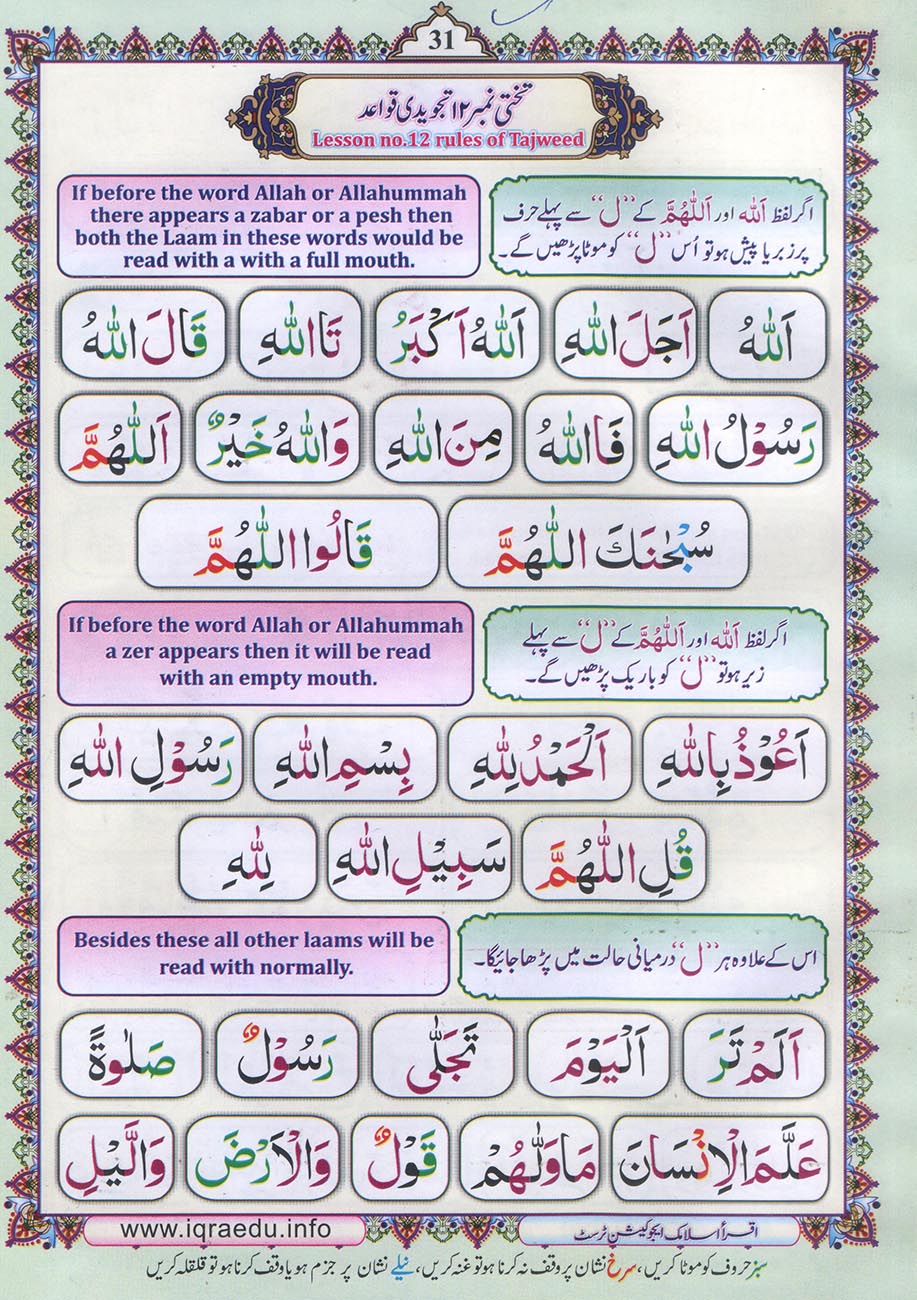 31
تختی نمبر ۱۲ تجویدی قواعد
Lesson no.12 rules of Tajweed
If before the word Allah or Allahummah
there appears a zabar or a pesh then
both the Laam in these words would be
read with a with a full mouth.
اگر لفظ اَللہ اور اَللّٰهُمَّ کے ”ل“ سے پہلے حرف
پر زبر یا پیش ہو تو اُس ”ل“ کو موٹا پڑھیں گے۔
اَللّٰهُ اَجَلَ اللّٰهِ اَللّٰهُ اَكْبَرُ تَااللّٰهِ قَالَ اللّٰهُ
رَسُوْلُ اللّٰهِ فَااللّٰهُ مِنَ اللّٰهِ وَاللّٰهُ خَيْرٌ اَللّٰهُمَّ
سُبْحٰنَكَ اللّٰهُمَّ قَالُوا اللّٰهُمَّ
If before the word Allah or Allahummah
a zer appears then it will be read
with an empty mouth.
اگر لفظ اَللہ اور اَللّٰهُمَّ کے ”ل“ سے پہلے
زیر ہو تو ”ل“ کو باریک پڑھیں گے۔
اَعُوْذُ بِاللّٰهِ اَلْحَمْدُ لِلّٰهِ بِسْمِ اللّٰهِ رَسُوْلِ اللّٰهِ
قُلِ اللّٰهُمَّ سَبِيْلِ اللّٰهِ لِلّٰهِ
Besides these all other laams will be
read with normally.
اس کے علاوہ ہر ”ل“ درمیانی حالت میں پڑھا جائیگا۔
اَلَمْ تَرَ اَلْيَوْمَ تَجَلّٰى رَسُوْلٌ صَلٰوةً
عَلَّمَ الْاِنْسَانَ مَاوَلّٰهُمْ قَوْلٌ وَالْاَرْضَ وَالَّيْلِ
www.iqraedu.info
اقرأ اسلامک ایجوکیشن ٹرسٹ
سبز حروف کو موٹا کریں، سرخ نشان پر وقف نہ کرنا ہو تو غنہ کریں، نیلے نشان پر جزم ہو یا وقف کرنا ہو تو قلقلہ کریں